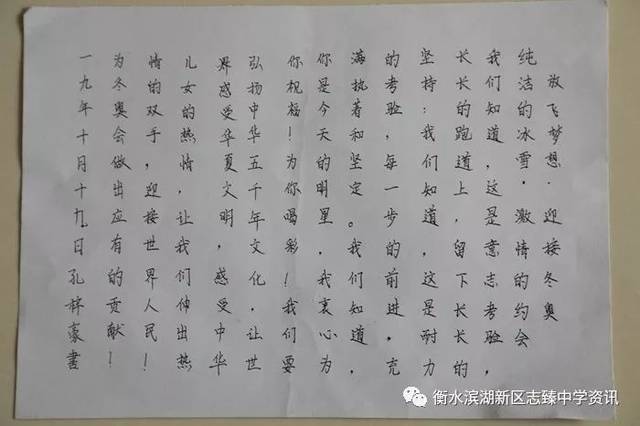 放飞梦想·迎接冬奥
纯洁的冰雪·激情的约会
我们知道，这是意志考验，
长长的跑道上，留下长长的
坚持：我们知道，这是耐力
的考验，每一步的前进，充
满执着和坚定。我们知道，
你是今天的明星，我衷心为
你祝福！为你喝彩！我们要
弘扬中华五千年文化，让世
界感受华夏文明，感受中华
儿女的热情，让我们伸出热
情的双手，迎接世界人民！
为冬奥会做出应有的贡献！
一九年十月十九日孔梓豪書
衡水滨湖新区志臻中学资讯